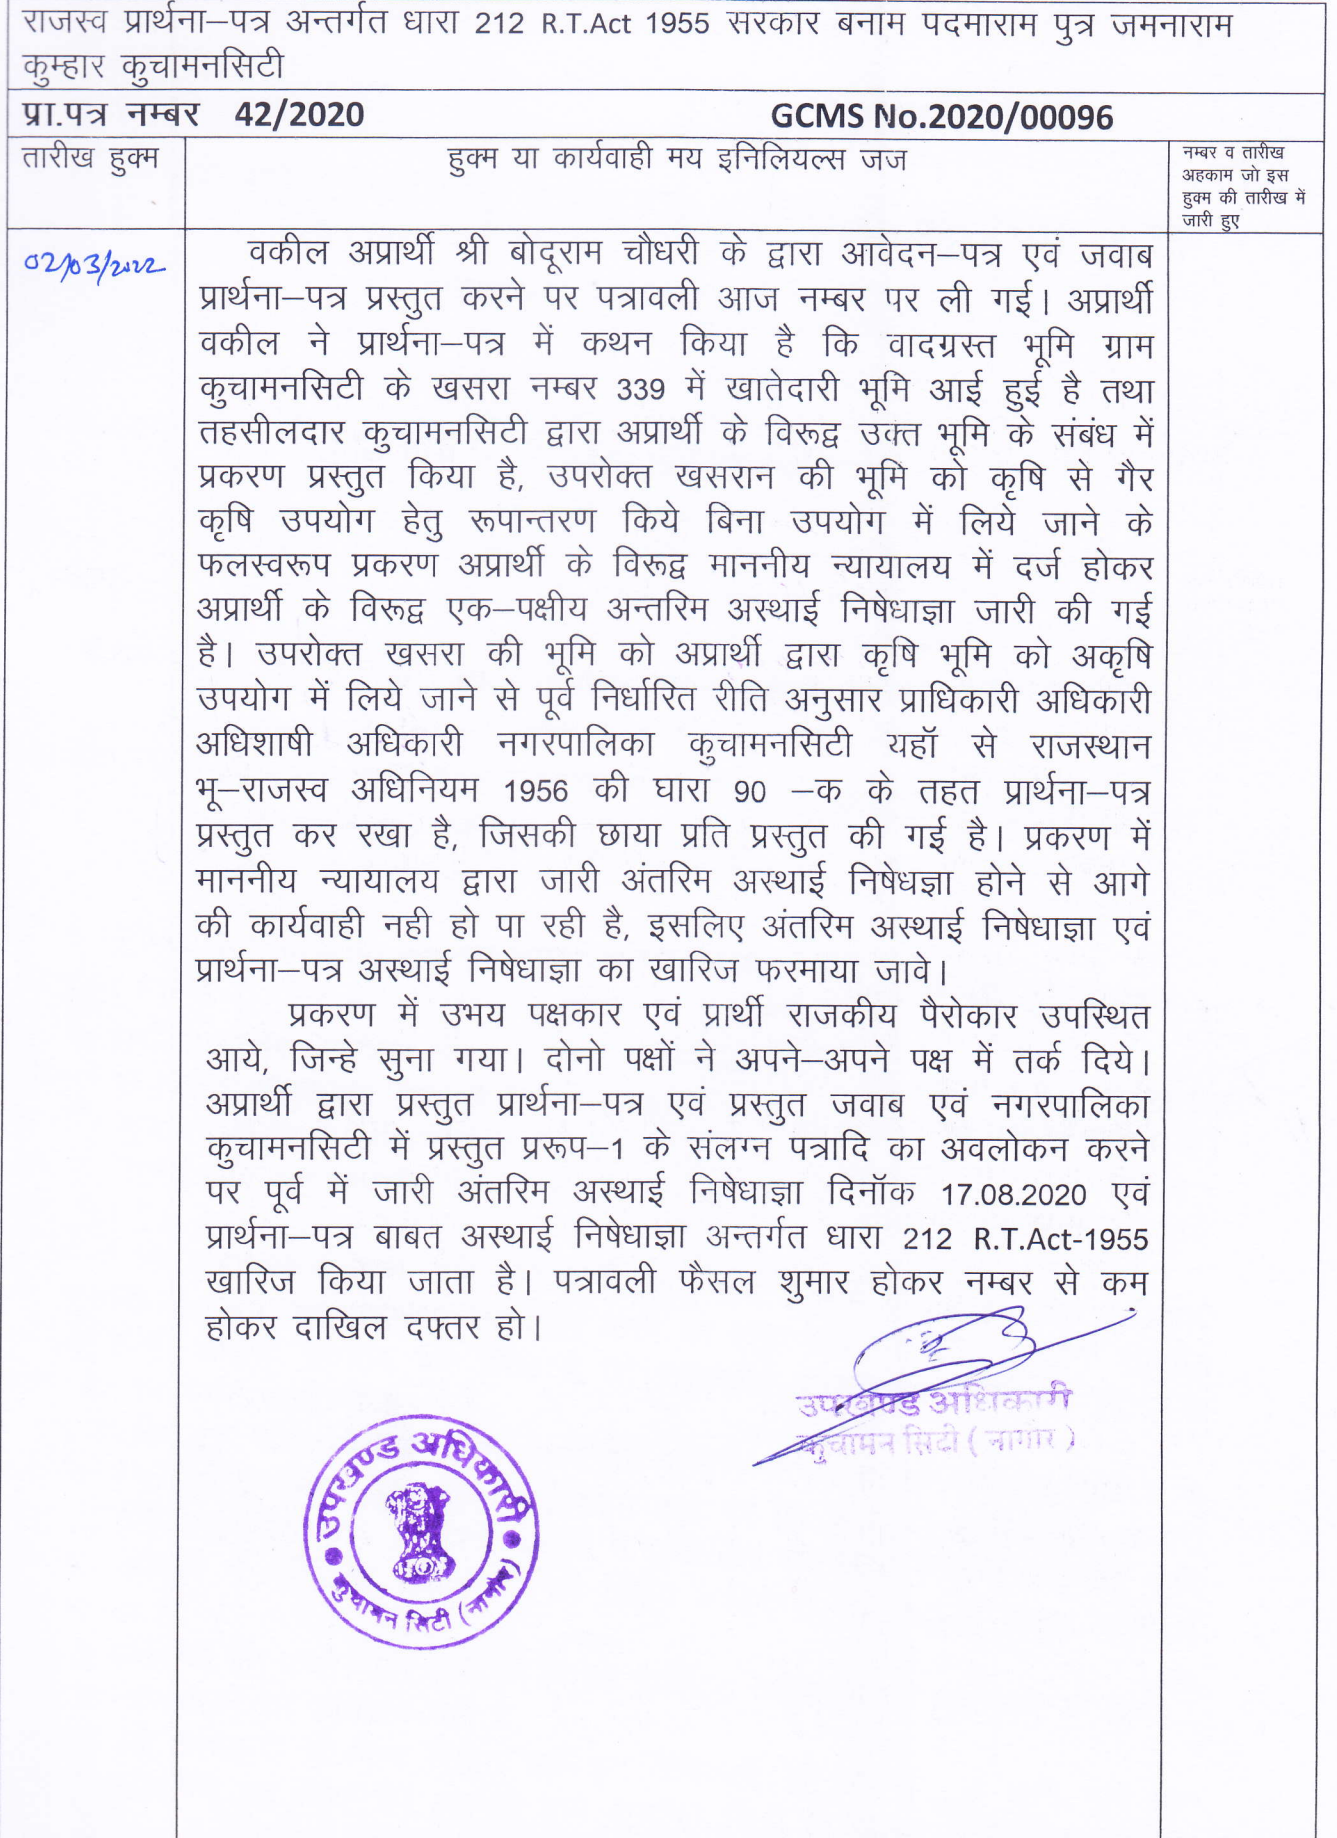 राजस्व प्रार्थना–पत्र अन्तर्गत धारा 212 R.T.Act 1955 सरकार बनाम पदमाराम पुत्र जमनाराम
कुम्हार कुचामनसिटी
प्रा.पत्र नम्बर 42/2020 GCMS No.2020/00096
तारीख हुक्म
हुक्म या कार्यवाही मय इनिलियल्स जज
नम्बर व तारीख
अहकाम जो इस
हुक्म की तारीख में
जारी हुए
02/03/2022
वकील अप्रार्थी श्री बोदूराम चौधरी के द्वारा आवेदन–पत्र एवं जवाब
प्रार्थना–पत्र प्रस्तुत करने पर पत्रावली आज नम्बर पर ली गई। अप्रार्थी
वकील ने प्रार्थना–पत्र में कथन किया है कि वादग्रस्त भूमि ग्राम
कुचामनसिटी के खसरा नम्बर 339 में खातेदारी भूमि आई हुई है तथा
तहसीलदार कुचामनसिटी द्वारा अप्रार्थी के विरूद्व उक्त भूमि के संबंध में
प्रकरण प्रस्तुत किया है, उपरोक्त खसरान की भूमि को कृषि से गैर
कृषि उपयोग हेतु रूपान्तरण किये बिना उपयोग में लिये जाने के
फलस्वरूप प्रकरण अप्रार्थी के विरूद्व माननीय न्यायालय में दर्ज होकर
अप्रार्थी के विरूद्व एक–पक्षीय अन्तरिम अस्थाई निषेधाज्ञा जारी की गई
है। उपरोक्त खसरा की भूमि को अप्रार्थी द्वारा कृषि भूमि को अकृषि
उपयोग में लिये जाने से पूर्व निर्धारित रीति अनुसार प्राधिकारी अधिकारी
अधिशाषी अधिकारी नगरपालिका कुचामनसिटी यहॉ से राजस्थान
भू–राजस्व अधिनियम 1956 की घारा 90 –क के तहत प्रार्थना–पत्र
प्रस्तुत कर रखा है, जिसकी छाया प्रति प्रस्तुत की गई है। प्रकरण में
माननीय न्यायालय द्वारा जारी अंतरिम अस्थाई निषेधज्ञा होने से आगे
की कार्यवाही नही हो पा रही है, इसलिए अंतरिम अस्थाई निषेधाज्ञा एवं
प्रार्थना–पत्र अस्थाई निषेधाज्ञा का खारिज फरमाया जावे।
प्रकरण में उभय पक्षकार एवं प्रार्थी राजकीय पैरोकार उपस्थित
आये, जिन्हे सुना गया। दोनो पक्षों ने अपने–अपने पक्ष में तर्क दिये।
अप्रार्थी द्वारा प्रस्तुत प्रार्थना–पत्र एवं प्रस्तुत जवाब एवं नगरपालिका
कुचामनसिटी में प्रस्तुत प्ररूप–1 के संलग्न पत्रादि का अवलोकन करने
पर पूर्व में जारी अंतरिम अस्थाई निषेधाज्ञा दिनॉक 17.08.2020 एवं
प्रार्थना–पत्र बाबत अस्थाई निषेधाज्ञा अन्तर्गत धारा 212 R.T.Act-1955
खारिज किया जाता है। पत्रावली फैसल शुमार होकर नम्बर से कम
होकर दाखिल दफ्तर हो।
उपखण्ड अधिकारी
कुचामन सिटी ( नागौर )
उपखण्ड अधिकारी
कुचामन सिटी (नागौर)